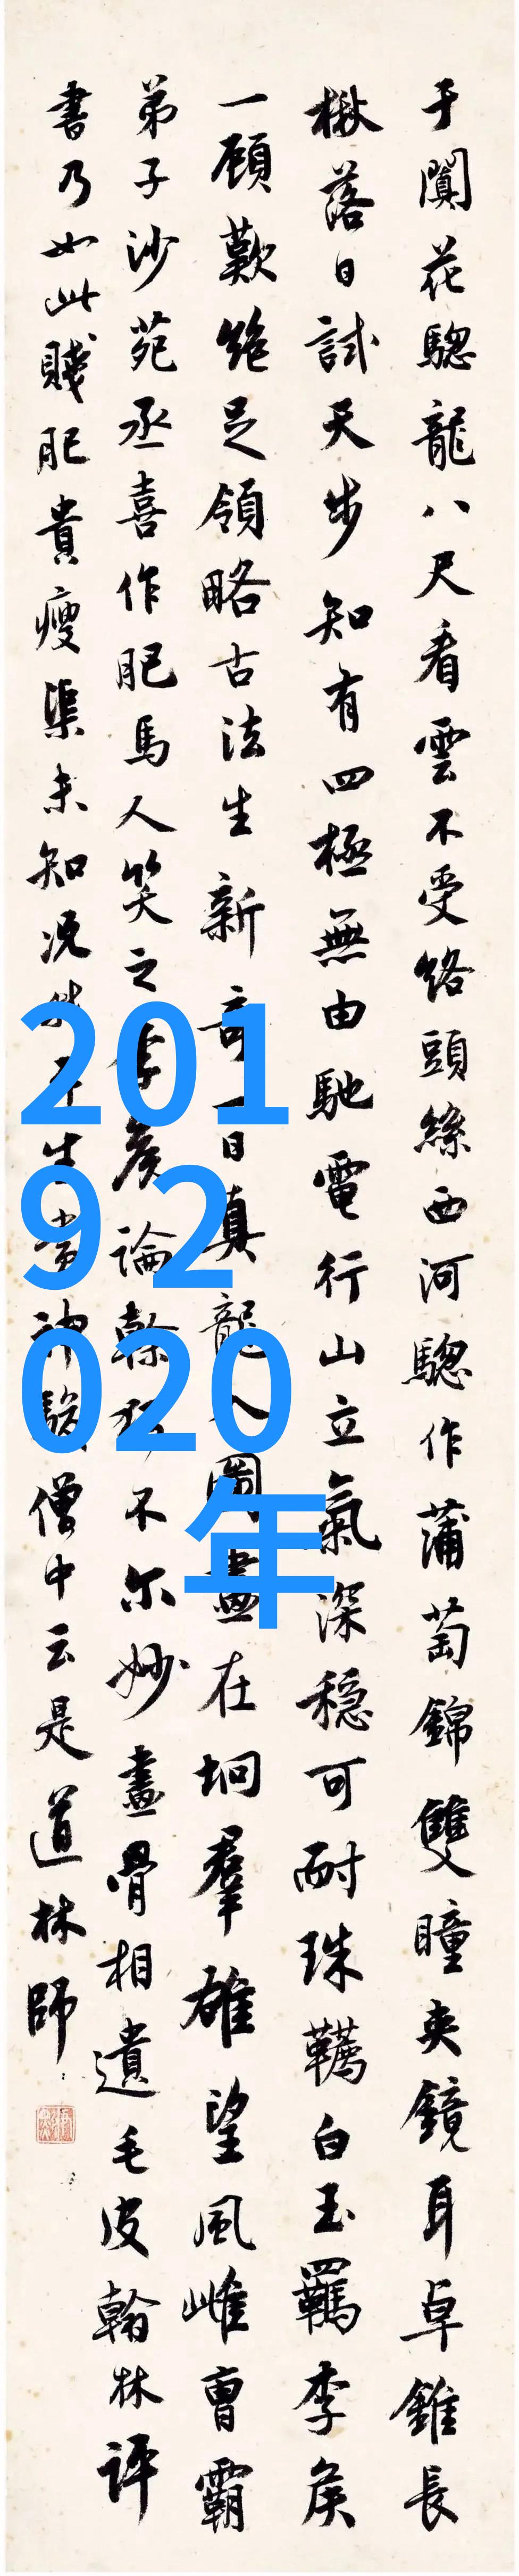 于闐花驄龍八尺看雲不受絡頭絲西河驄作蒲萄錦雙瞳夾鏡耳卓錐長
楸落日試天步知有四極無由馳電行山立氣深穩可耐珠韉白玉羈李侯
一顧歎絕足領略古法生新奇一日真龍入圖畫在坰羣雄望風雌曹霸
弟子沙苑丞喜作肥馬人笑之李侯論幹獨不尔妙畫骨相遺毛皮翰林評
書乃如此賤肥貴瘦渠未知况我平生賞神駿僧中云是道林師
201
9 2
020
年